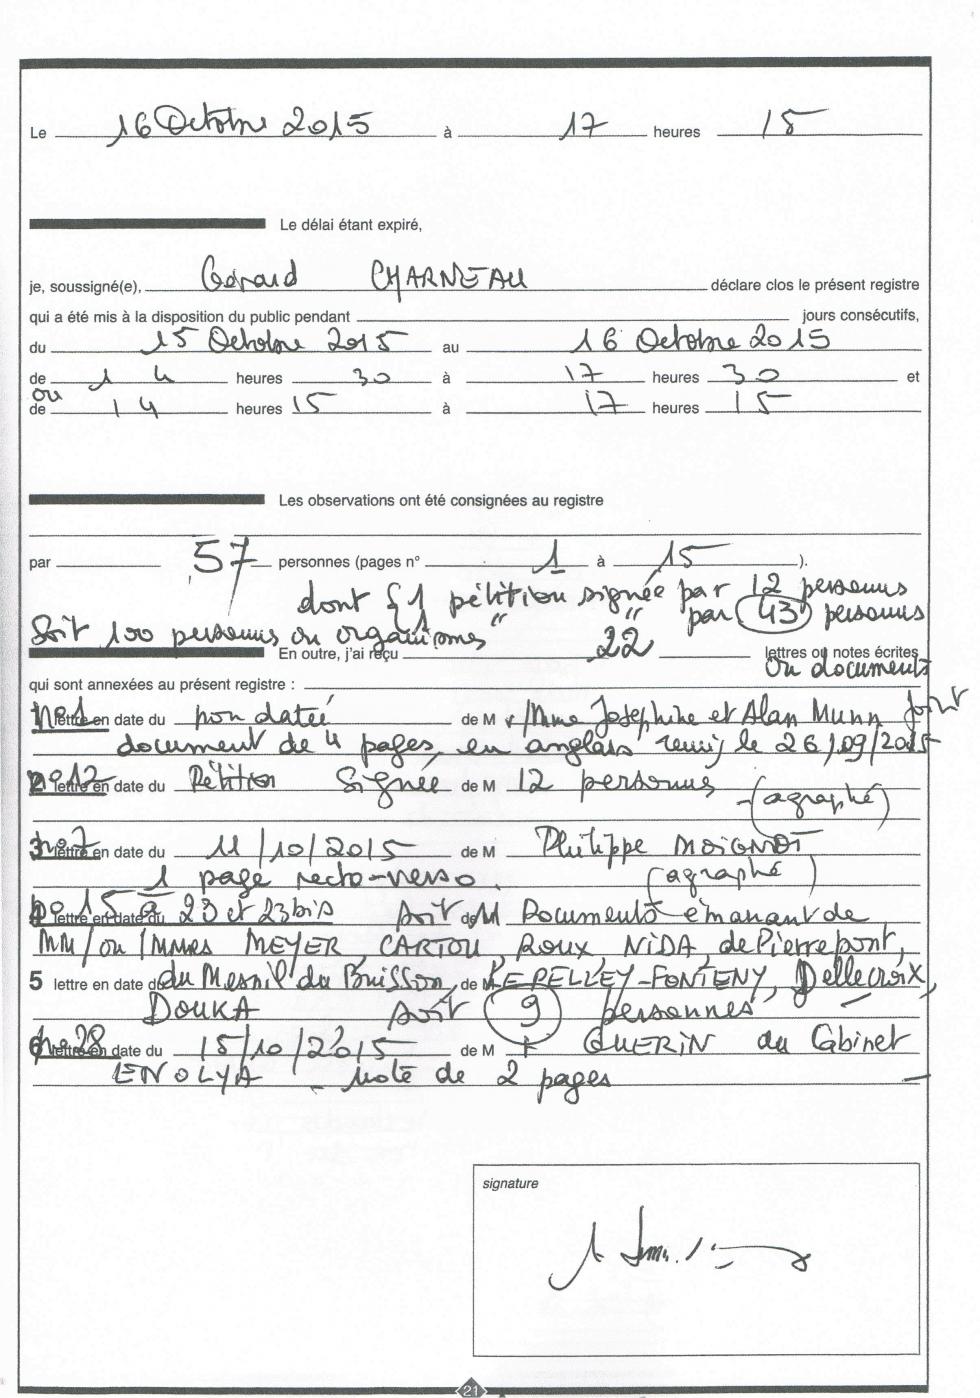 Le 16 Octobre 2015 à 17 heures 15
Le délai étant expiré,
je, soussigné(e), Gérard CHARNEAU déclare clos le présent registre
qui a été mis à la disposition du public pendant jours consécutifs,
du 15 Octobre 2015 au 16 Octobre 2015
de 14 heures 30 à 17 heures 30 et
ou
de 14 heures 15 à 17 heures 15
Les observations ont été consignées au registre
par 57 personnes (pages n° 1 à 15 ).
dont { 1 pétition signée par 12 personnes
1 " " par 43 personnes
Soit 100 personnes ou organismes
En outre, j'ai reçu 22 lettres ou notes écrites
ou documents
qui sont annexées au présent registre :
n° 1 lettre en date du non datée de M r/Mme Josephine et Alan Munn
document de 4 pages, en anglais remis le 26/09/2015
n° 12 lettre en date du Pétition Signée de M 12 personnes
(agraphé)
3 n° 7 lettre en date du 11/10/2015 de M Philippe MOIGNOT
1 page recto-verso. (agraphé)
n° 15 à 23 et 23 bis soit Documents émanant de
lettre en date du de M
MM/ou/Mmes MEYER, CARTOU, ROUX, NIDA, de Pierrepont,
5 lettre en date du du Mesnil du Buisson, de M LE PELLEY-FONTENY, Dellecroix,
DOUKA soit 9 personnes
6 n° 28 lettre en date du 15/10/2015 de M r GUERIN du Cabinet
ENOLYA - note de 2 pages
signature
21